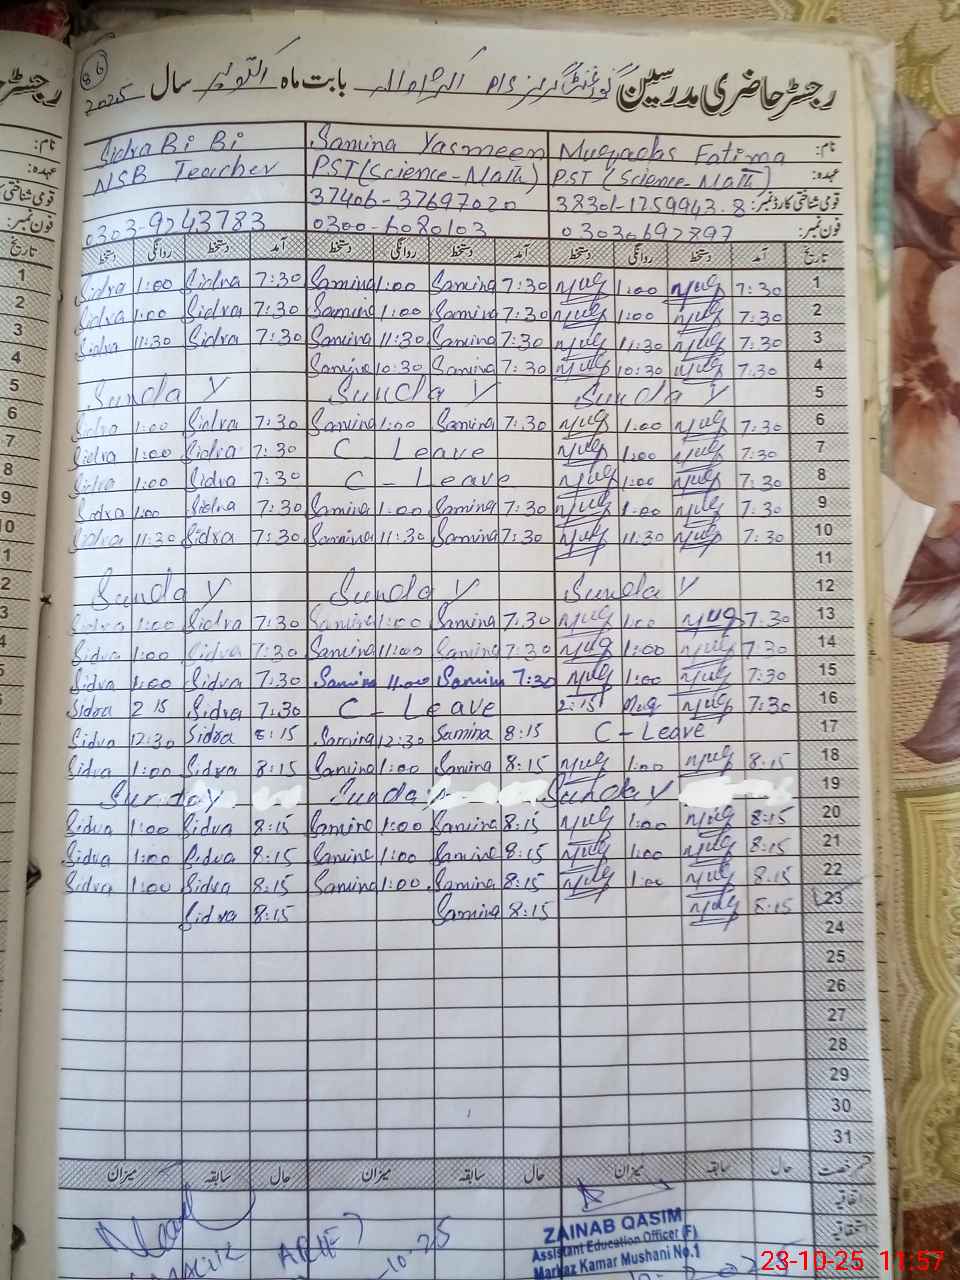 رجسٹر حاضری مدرسین گورنمنٹ گرلز بابت ماہ اکتوبر سال 2025
86
نام: Muqadas Fatima Samina Yasmeen Sidra Bi Bi
عہدہ: PST (Science-Math) PST (Science-Math) NSB Teacher
قومی شناختی کارڈ نمبر: 38301-1759943-8 37406-37697020
فون نمبر: 03030692897 0300-6080103 0303-9243783
تاریخ آمد دستخط روانگی دستخط آمد دستخط روانگی دستخط آمد دستخط روانگی دستخط
Sidra 1:00 Sidra 7:30 Samina 1:00 Samina 7:30 Muq 1:00 Muq 7:30 1
Sidra 1:00 Sidra 7:30 Samina 1:00 Samina 7:30 Muq 1:00 Muq 7:30 2
Sidra 11:30 Sidra 7:30 Samina 11:30 Samina 7:30 Muq 11:30 Muq 7:30 3
Samina 10:30 Samina 7:30 Muq 10:30 Muq 7:30 4
Sunday Sunday Sunday 5
Sidra 1:00 Sidra 7:30 Samina 1:00 Samina 7:30 Muq 1:00 Muq 7:30 6
Sidra 1:00 Sidra 7:30 C - Leave Muq 1:00 Muq 7:30 7
Sidra 1:00 Sidra 7:30 C - Leave Muq 1:00 Muq 7:30 8
Sidra 1:00 Sidra 7:30 Samina 1:00 Samina 7:30 Muq 1:00 Muq 7:30 9
Sidra 11:30 Sidra 7:30 Samina 11:30 Samina 7:30 Muq 11:30 Muq 7:30 10
11
Sunday Sunday Sunday 12
Sidra 1:00 Sidra 7:30 Samina 1:00 Samina 7:30 Muq 1:00 Muq 7:30 13
Sidra 1:00 Sidra 7:30 Samina 11:00 Samina 7:30 Muq 1:00 Muq 7:30 14
Sidra 1:00 Sidra 7:30 Samina 11:00 Samina 7:30 Muq 1:00 Muq 7:30 15
Sidra 2 15 Sidra 7:30 C - Leave 2:15 Muq Muq 7:30 16
Sidra 12:30 Sidra 8:15 Samina 12:30 Samina 8:15 C - Leave 17
Sidra 1:00 Sidra 8:15 Samina 1:00 Samina 8:15 Muq 1:00 Muq 8:15 18
Sunday Sunday Sunday 19
Sidra 1:00 Sidra 8:15 Samina 1:00 Samina 8:15 Muq 1:00 Muq 8:15 20
Sidra 1:00 Sidra 8:15 Samina 1:00 Samina 8:15 Muq 1:00 Muq 8:15 21
Sidra 1:00 Sidra 8:15 Samina 1:00 Samina 8:15 Muq 1:00 Muq 8:15 22
Sidra 8:15 Samina 8:15 Muq 8:15 23
24
25
26
27
28
29
30
31
قسم رخصت حال سابقہ میزان حال سابقہ میزان حال سابقہ میزان
اتفاقیہ
استحقاقیہ
ZAINAB QASIM
Assistant Education Officer (F)
Markaz Kamar Mushani No.1
-10-25
23-10-25 11:57